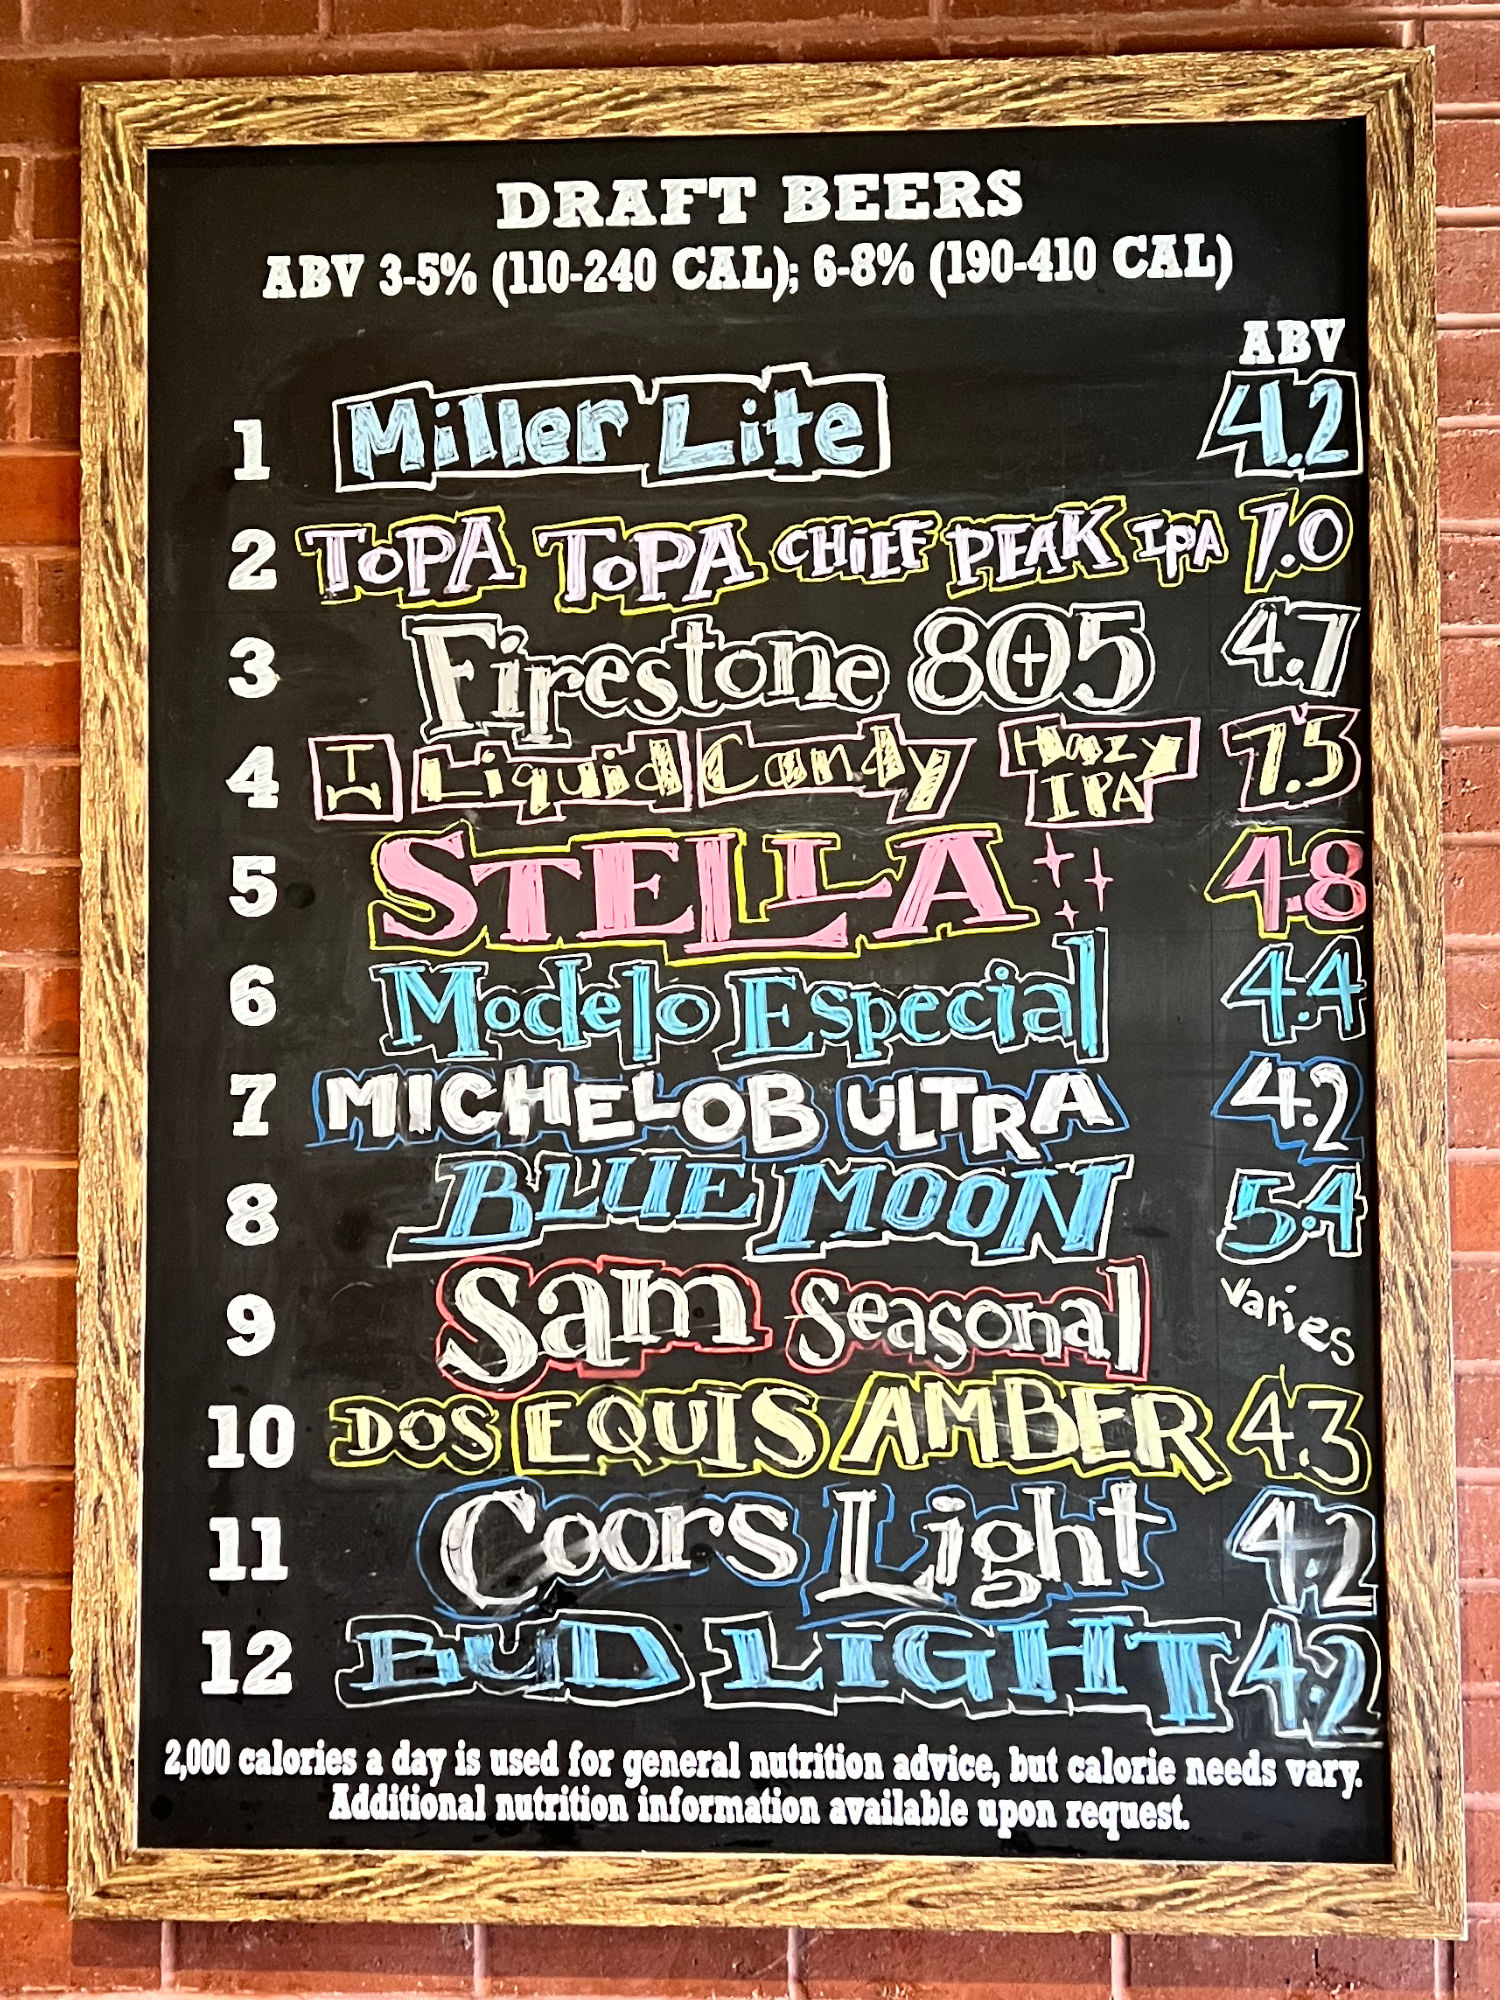 DRAFT BEERS
ABV 3-5% (110-240 CAL); 6-8% (190-410 CAL)
ABV
1 Miller Lite 4.2
2 TOPA TOPA CHIEF PEAK IPA 7.0
3 Firestone 805 4.7
4 Liquid Candy Hazy IPA 7.5
5 STELLA 4.8
6 Modelo Especial 4.4
7 MICHELOB ULTRA 4.2
8 BLUE MOON 5.4
9 Sam Seasonal varies
10 DOS EQUIS AMBER 4.3
11 Coors Light 4.2
12 BUD LIGHT 4.2
2,000 calories a day is used for general nutrition advice, but calorie needs vary.
Additional nutrition information available upon request.